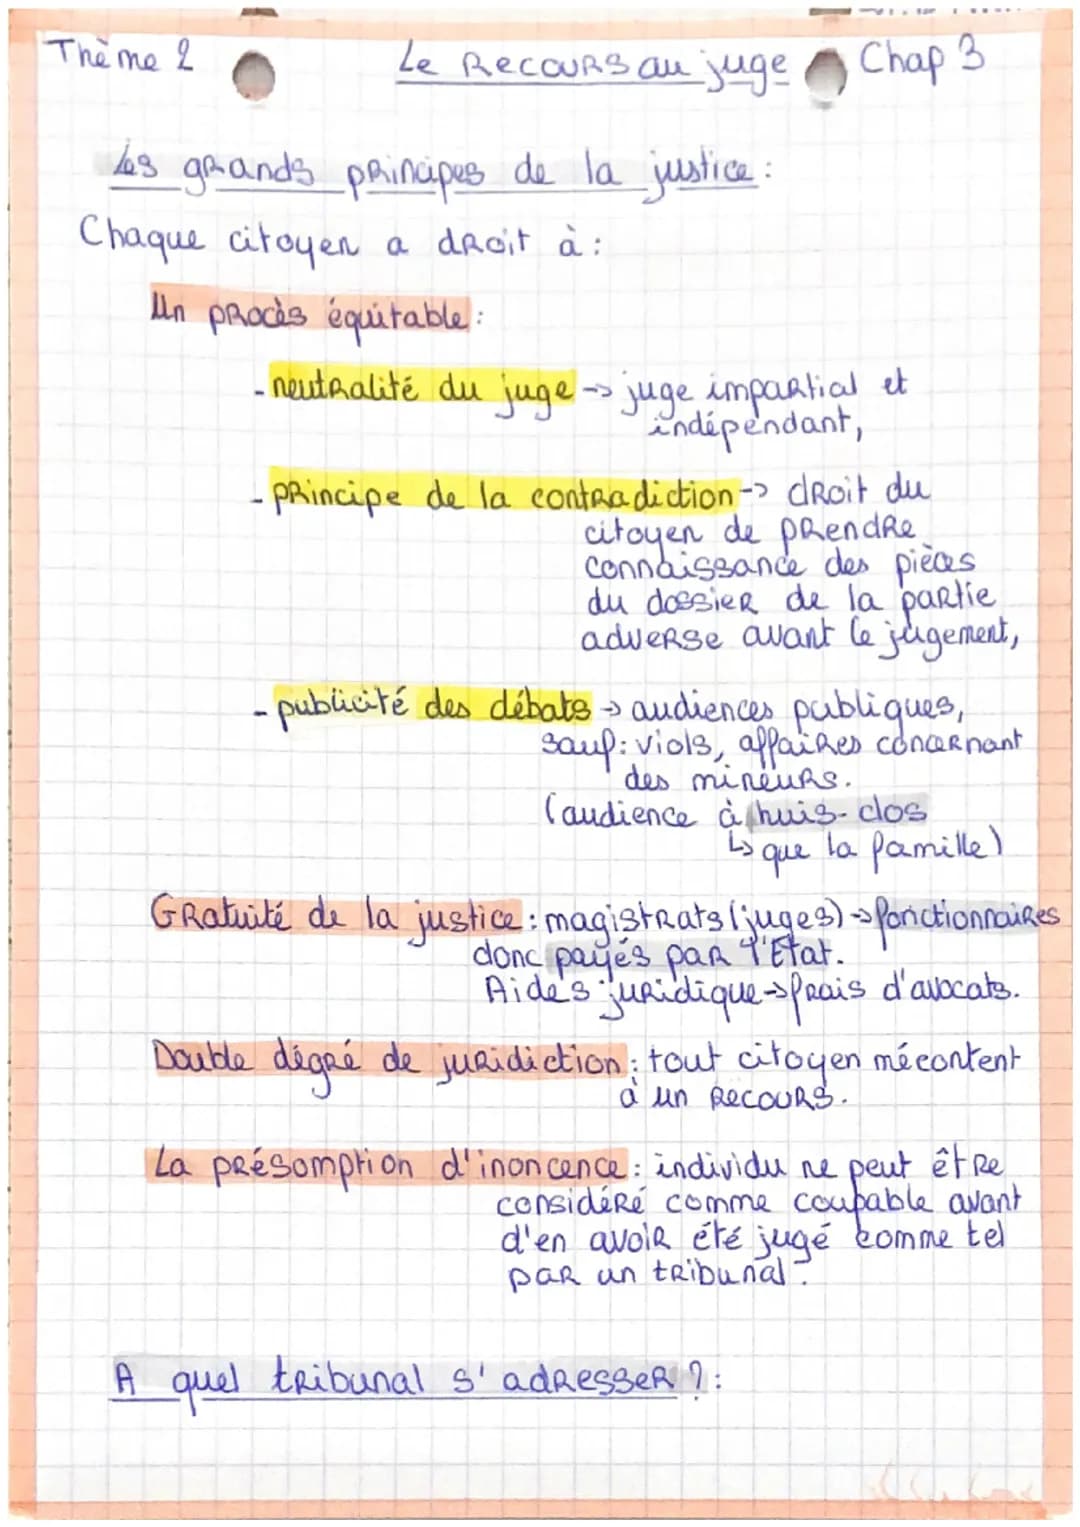 Thème 2 Le Recours au juge Chap 3
Les grands principes de la justice :
Chaque citoyen a droit à :
Un procès équitable :
- neutralité du juge -> juge impartial et
indépendant,
- principe de la contradiction -> droit du
citoyen de prendre
connaissance des pièces
du dossier de la partie
adverse avant le jugement,
- publicité des débats -> audiences publiques,
sauf : viols, affaires concernant
des mineurs.
(audience à huis-clos
↳ que la famille)
Gratuité de la justice : magistrats (juges) -> fonctionnaires
donc payés par l'Etat.
Aides juridique -> frais d'avocats.
Double dégré de juridiction : tout citoyen mécontent
à un recours.
La présomption d'inoncence : individu ne peut être
considéré comme coupable avant
d'en avoir été jugé comme tel
par un tribunal.
A quel tribunal s'adresser ? :